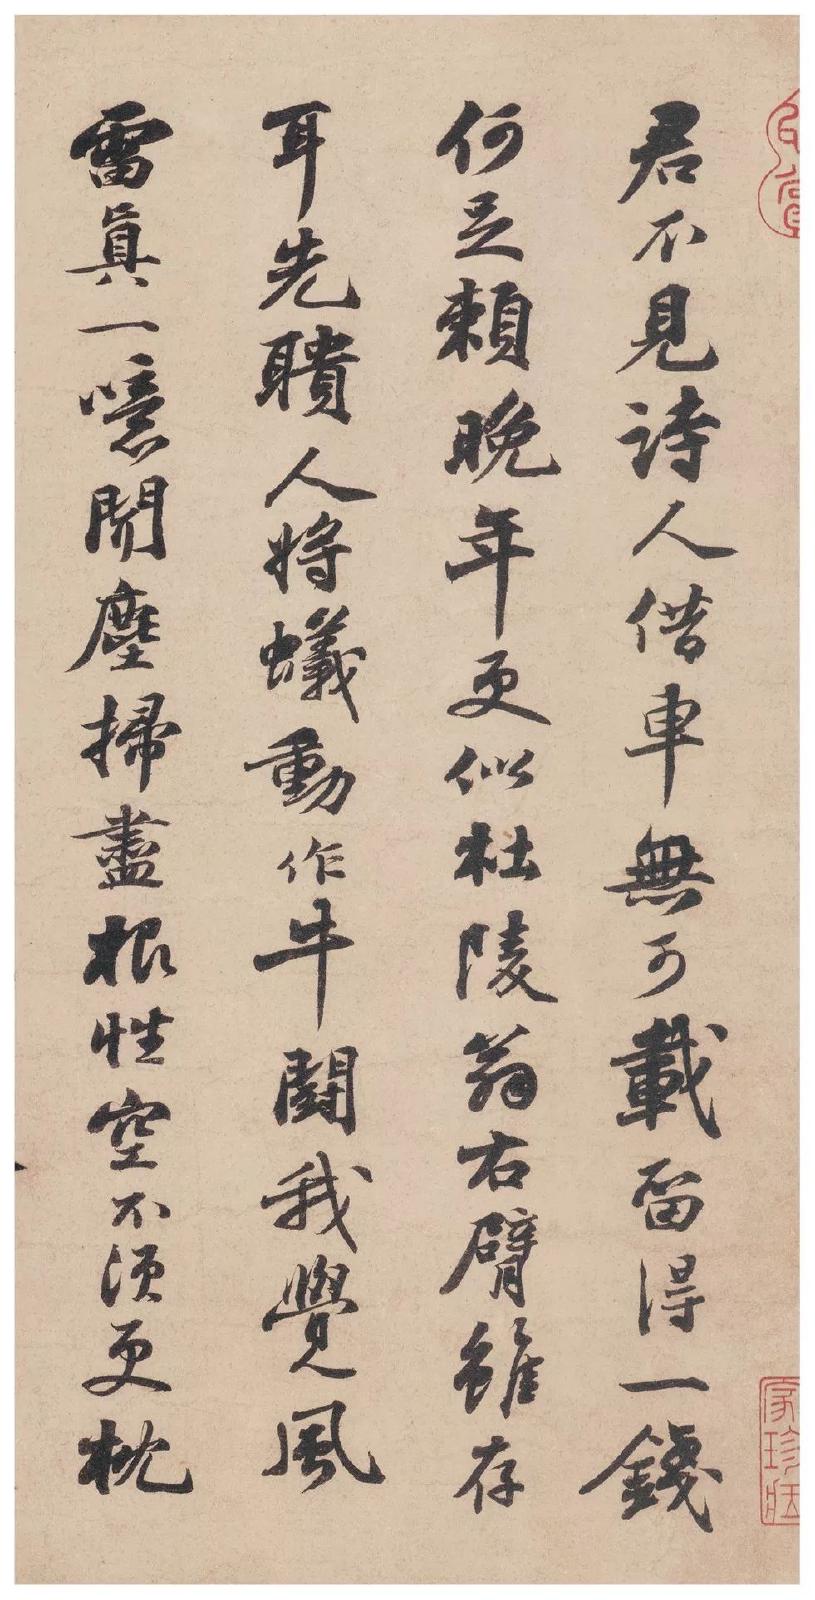 君不見詩人借車無可載留得一錢
何足賴晚年更似杜陵翁右臂雖存
耳先聵人將蟻動作牛鬭我覺風
雷眞一噫聞塵掃盡根性空不須更枕